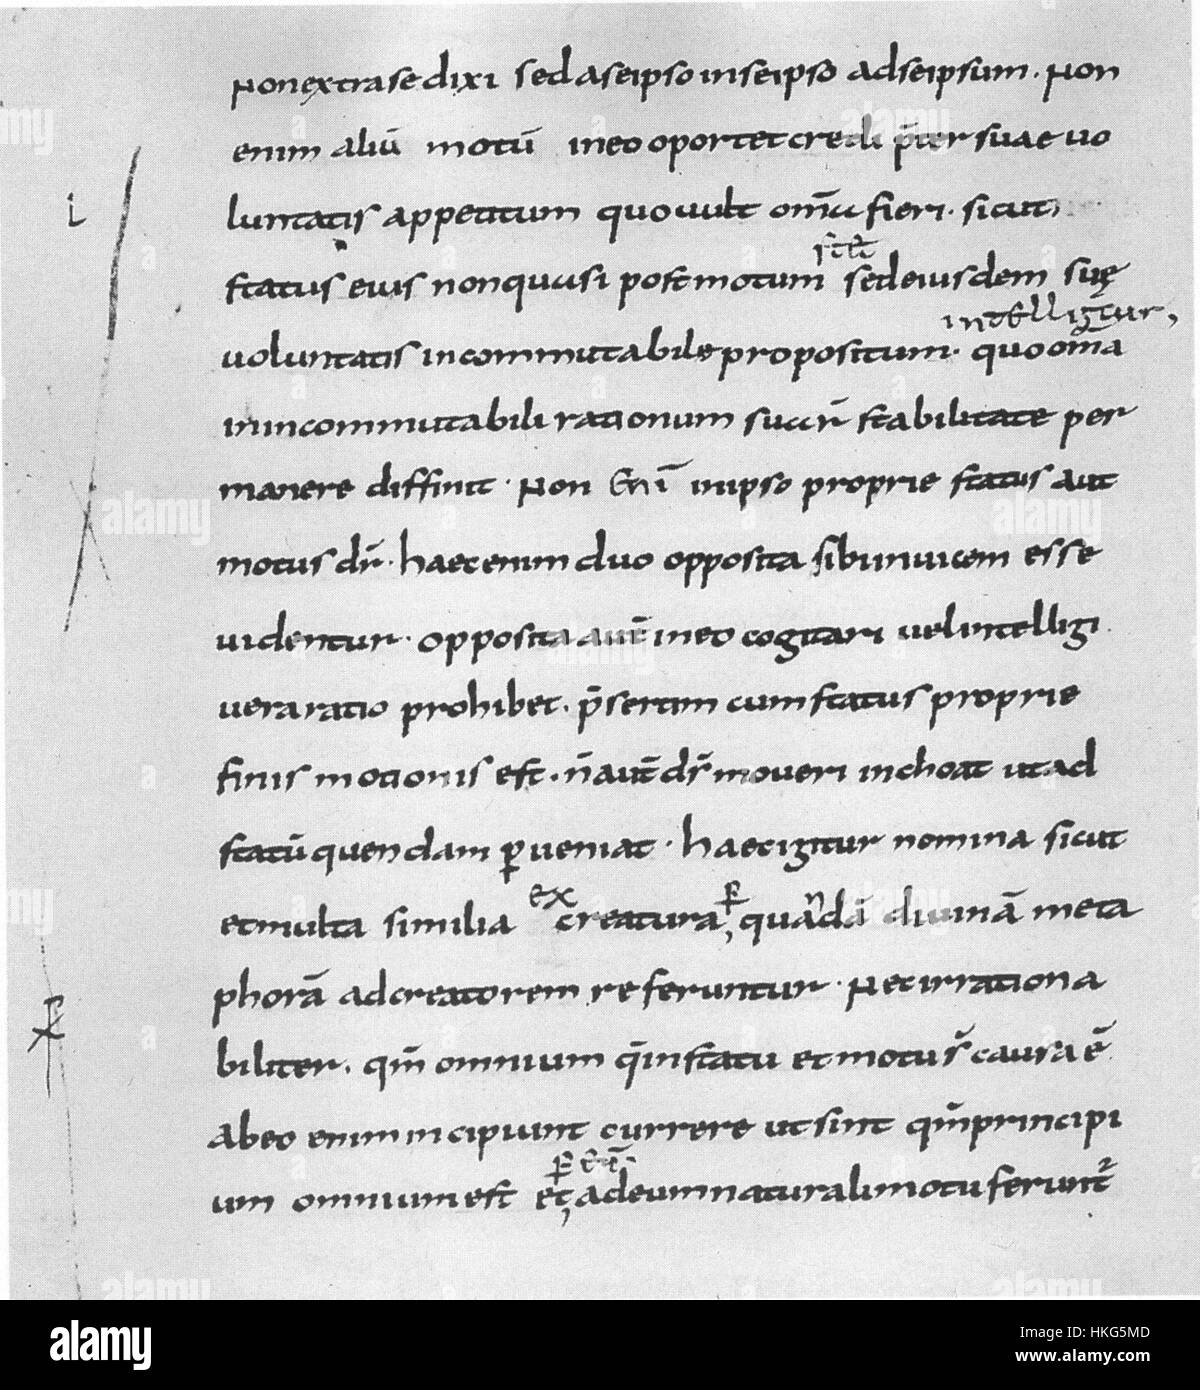 Non extra se dixi sed a se ipso in se ipso ad se ipsum. Non
enim aliū motū in eo oportet credi p̄ter suae uo
luntatis appetitum quo uult om̄a fieri. sicut
stāt
status eius non quasi post motum sed eiusdem suę
intelligitur,
uoluntatis incommutabile propositum. quo om̄a
in incommutabili rationum suarū stabilitate per
manere diffinit. Non enī in ipso proprie status aut
motus dr̄. haec enim duo opposita sibi inuicem esse
uidentur. opposita autē in eo cogitari uel intelligi
uera ratio prohibet. p̄sertim cum status proprie
finis motionis est. n̄ autē dr̄ moueri inchoat ut ad
statū quendam ꝑueniat. haec igitur nomina sicut
ex
et multa similia creatura, quandā diuinā meta
phorā ad creatorem referuntur. Nec irrationa
biliter. qm̄ omnium q̄ in statu et motu s̄ causa ē
ab eo enim incipiunt currere ut sint qm̄ principi
um omnium est et ad eum naturali motu ferunt̄
alamy
a
Image ID: HKG5MD
www.alamy.com